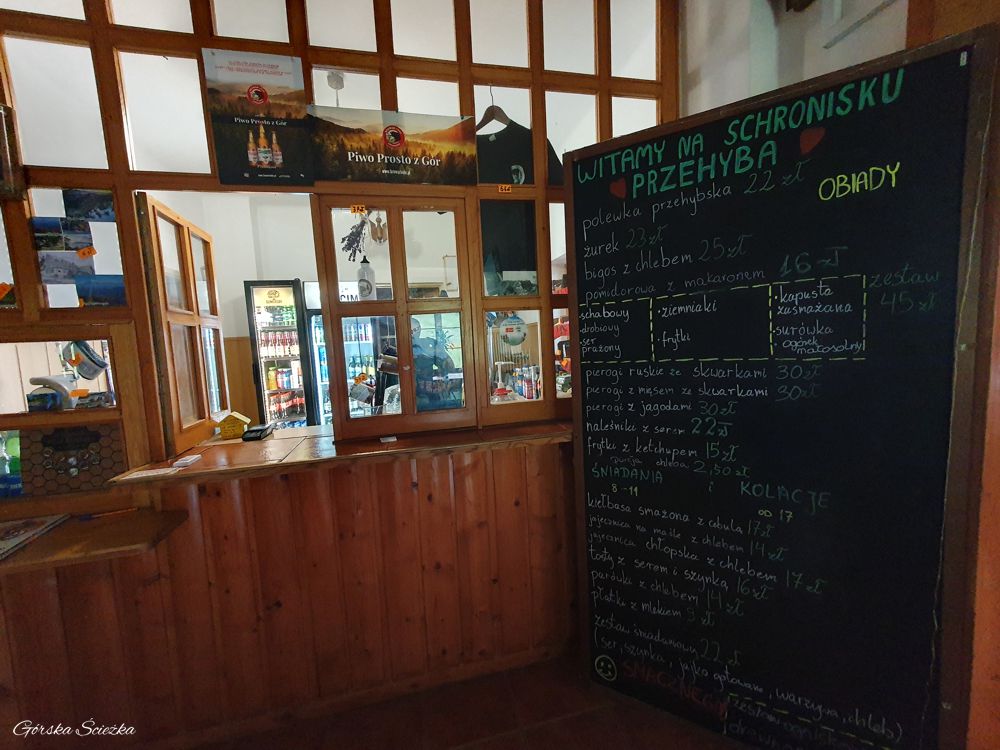 Piwo Prosto z Gór
Piwo Prosto z Gór
WITAMY NA SCHRONISKU
PRZEHYBA
OBIADY
polewka przehybska 22 zł
żurek 23 zł
bigos z chlebem 25 zł
pomidorowa z makaronem 16 zł
zestaw
45 zł
· schabowy
· drobiowy
· ser
prażony
· ziemniaki
· frytki
· kapusta
zasmażana
· surówka
· ogórek
małosolny
pierogi ruskie ze skwarkami 30 zł
pierogi z mięsem ze skwarkami 30 zł
pierogi z jagodami 30 zł
naleśniki z serem 22 zł
frytki z ketchupem 15 zł
porcja chleba 2,50 zł
ŚNIADANIA i KOLACJE
8-11 OD 17
kiełbasa smażona z cebulą 17 zł
jajecznica na maśle z chlebem 14 zł
jajecznica chłopska z chlebem 17 zł
tosty z serem i szynką 16 zł
parówki z chlebem 14 zł
płatki z mlekiem 9 zł
zestaw śniadaniowy 22 zł
(ser, szynka, jajko gotowane, warzywa, chleb)
SMACZNEGO
Górska Ścieżka